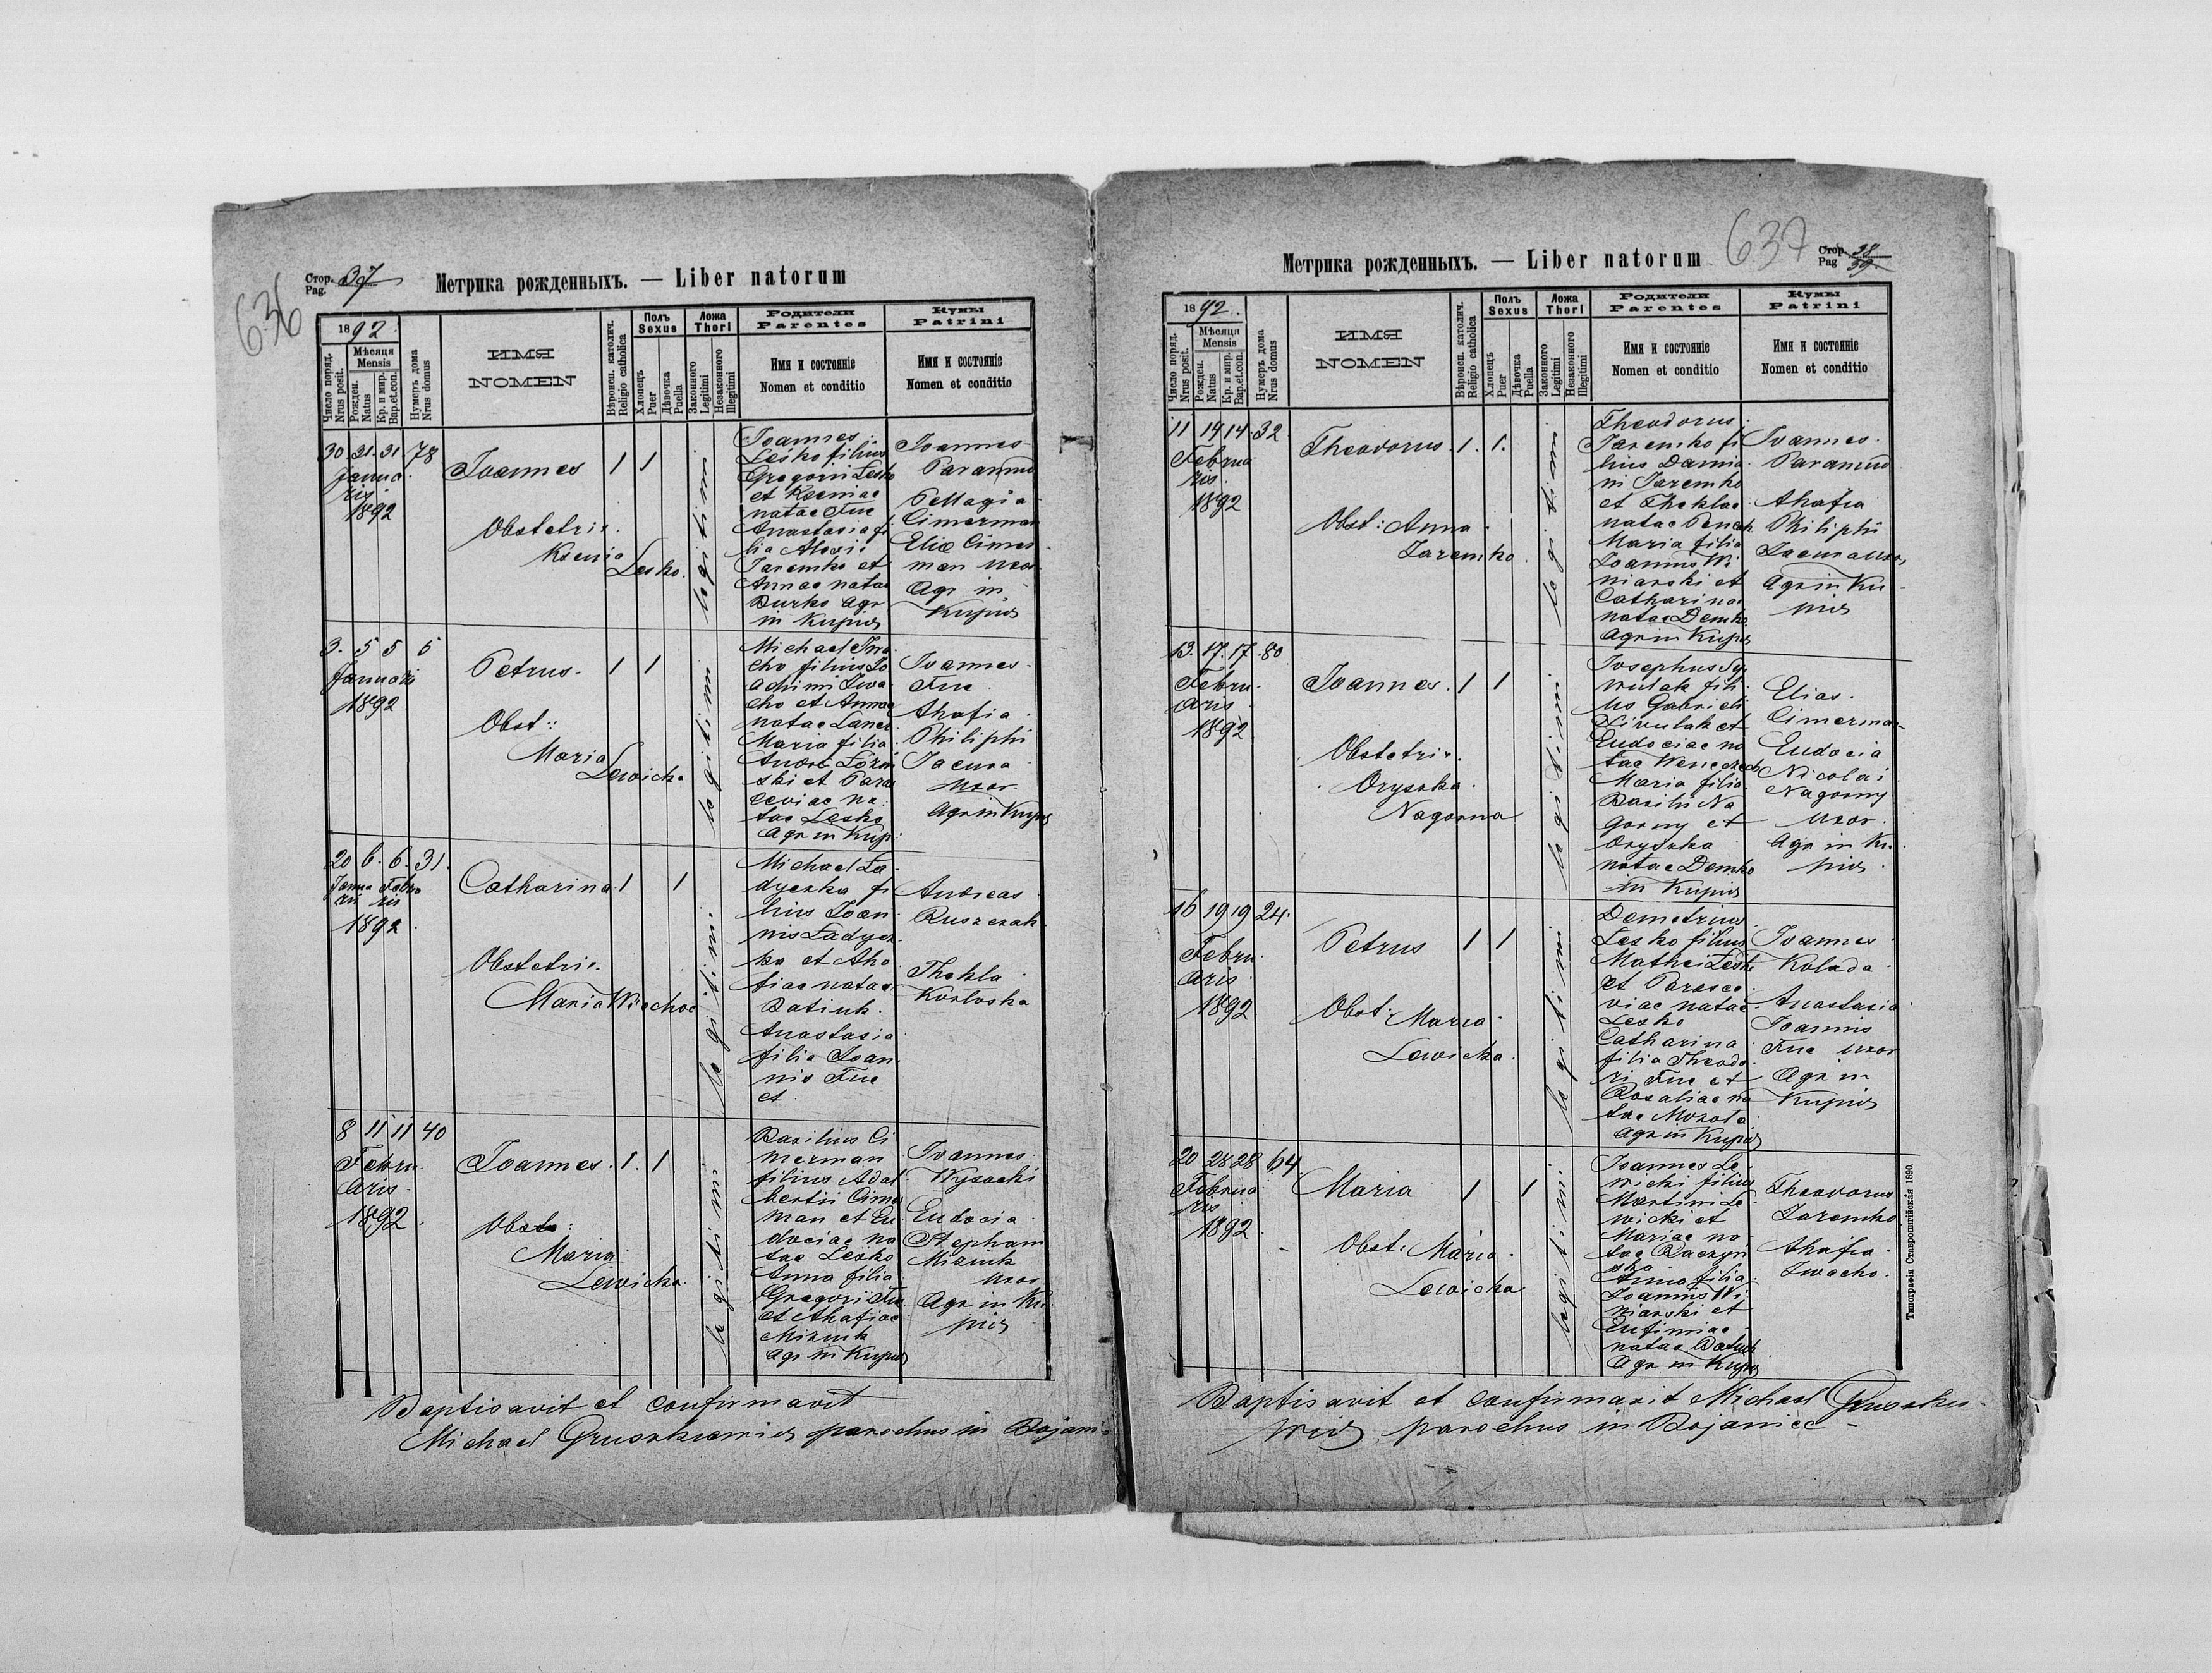 636
Стор. Pag. 37
Метрика рожденныхъ. — Liber natorum
1892.
Число поряд. Nrus posit.
Мѣсяця Mensis
Рожден. Natus
Кр. и мир. Bap.et.con.
Нумеръ дома Nrus domus
ИМЯ
NOMEN
Вѣроисп. католич. Religio catholica
Полъ Sexus
Хлопецъ Puer
Дѣвочка Puella
Ложа Thori
Законного Legitimi
Незаконного Illegitimi
Родители
Parentes
Имя и состоянiе
Nomen et conditio
Кумы
Patrini
Имя и состоянiе
Nomen et conditio
30 31. 31 78
Janua
ris
1892
Joannes 1 1
Obstetrix.
Ksenia Lesko.
legitimi
Joannes
Lesko filius
Gregorii Lesko
et Kseniae
natae Fuc
Anastasia fi
lia Alexii
Jaremko et
Annae natae
Burko Agr
in Kupicz
Joannes
Paranus
Pellagia
Cimerman
Eliae Cimer
man uxor
Agr in
Kupicz
3. 5 5 5
Januari
1892
Petrus. 1 1
Obst::
Maria
Lewicka
legitimi
Michael Iwa
cho filius Jo
achimi Iwa
cho et Annae
natae
Maria filia
ski et Paras
ceviae na
tae Lesko
Agr in Kup:
Joannes
Fuc
Ahafia
Philiphi
Pacura
uxor
Agr in Kupicz
20 6. 6. 31.
Janua Febru
rii ris
1892.
Catharina 1 1
Obstetrix.
Maria
legitimi
Michael La
dyczka fi
lius Joan
nis Ladycz
ka et Aha
fiae natae
Batiuk.
Anastasia
filia Joan
nis Fuc
et
Andreas
Ruszczak
Thekla
8 11 11 40
Febru
aris
1892.
Joannes. 1. 1
Obst:
Maria
Lewicka
legitimi
Basilius Ci
merman
filius Adal
bertii Cimer
man et Eu
dociae na
tae Lesko
Anna filia
Gregorii Fuc
et Ahafiae
Miziuk
Agr in Kupicz
Joannes
Wysocki
Eudocia
Stephani
Miziuk
uxor
Agr in Ku
picz
Baptisavit et confirmavit
Michael Gruszkiewicz parochus in Bojani
637
Метрика рожденныхъ. — Liber natorum
Стор. Pag 38
39
1892.
Число поряд. Nrus posit.
Мѣсяця Mensis
Рожден. Natus
Кр. и мир. Bap.et.con.
Нумеръ дома Nrus domus
ИМЯ
NOMEN
Вѣроисп. католич. Religio catholica
Полъ Sexus
Хлопецъ Puer
Дѣвочка Puella
Ложа Thori
Законного Legitimi
Незаконного Illegitimi
Родители
Parentes
Имя и состоянiе
Nomen et conditio
Кумы
Patrini
Имя и состоянiе
Nomen et conditio
11 14 14. 32
Februa
ris
1892
Theodorus. 1. 1.
Obst: Anna
Jaremko
legitimi
Theodorus
Jaremko fi
lius Damia
ni Jaremko
et Theklae
natae
Maria filia
Joannis Wi
niarski et
Catharina
natae Demko
Agr in Kupicz
Joannes
Paranus
Ahafia
Philiphi
Pacura uxor,
Agr in Ku
picz
13. 17. 17. 80
Febru
aris
1892
Joannes. 1 1
Obstetrix.
Oryszka
Nagorna
legitimi
Josephus Sy
wulak fili
us Gabrieli
Siwulak et
Eudociae na
tae
Maria filia
Basilii Na
gorny et
Oryszka
natae Demko
in Kupicz
Elias
Cimerman
Eudocia
Nicolai
Nagorny
uxor
Agr in Ku
picz
16 19 19 24.
Febru
aris
1892
Petrus 1 1
Obst: Maria
Lewicka.
legitimi
Demetrius
Lesko filius
Mathei Lesko
et Parasce
viae natae
Lesko
Catharina
filia Theodo
ri Fuc et
Rosaliae na
tae
Agr in Kupicz
Joannes
Kolada
Anastasia
Joannis
Fuc uxor
Agr in
Kupicz
20 28 28 64
Februa
ris
1892
Maria 1 1
Obst: Maria
Lewicka
legitimi
Joannes Le
wicki filius
Martini Le
wicki et
Mariae na
tae Baczyn
ska
Anna filia
Joannis Wi
niarski et
Eufimiae
natae Batiuk
Agr in Kupicz
Theodorus
Jaremko
Ahafia
Iwacho.
Baptisavit et confirmavit Michael Gruszkie
wicz parochus in Bojaniec
Типографiя Ставропигiйская 1890.